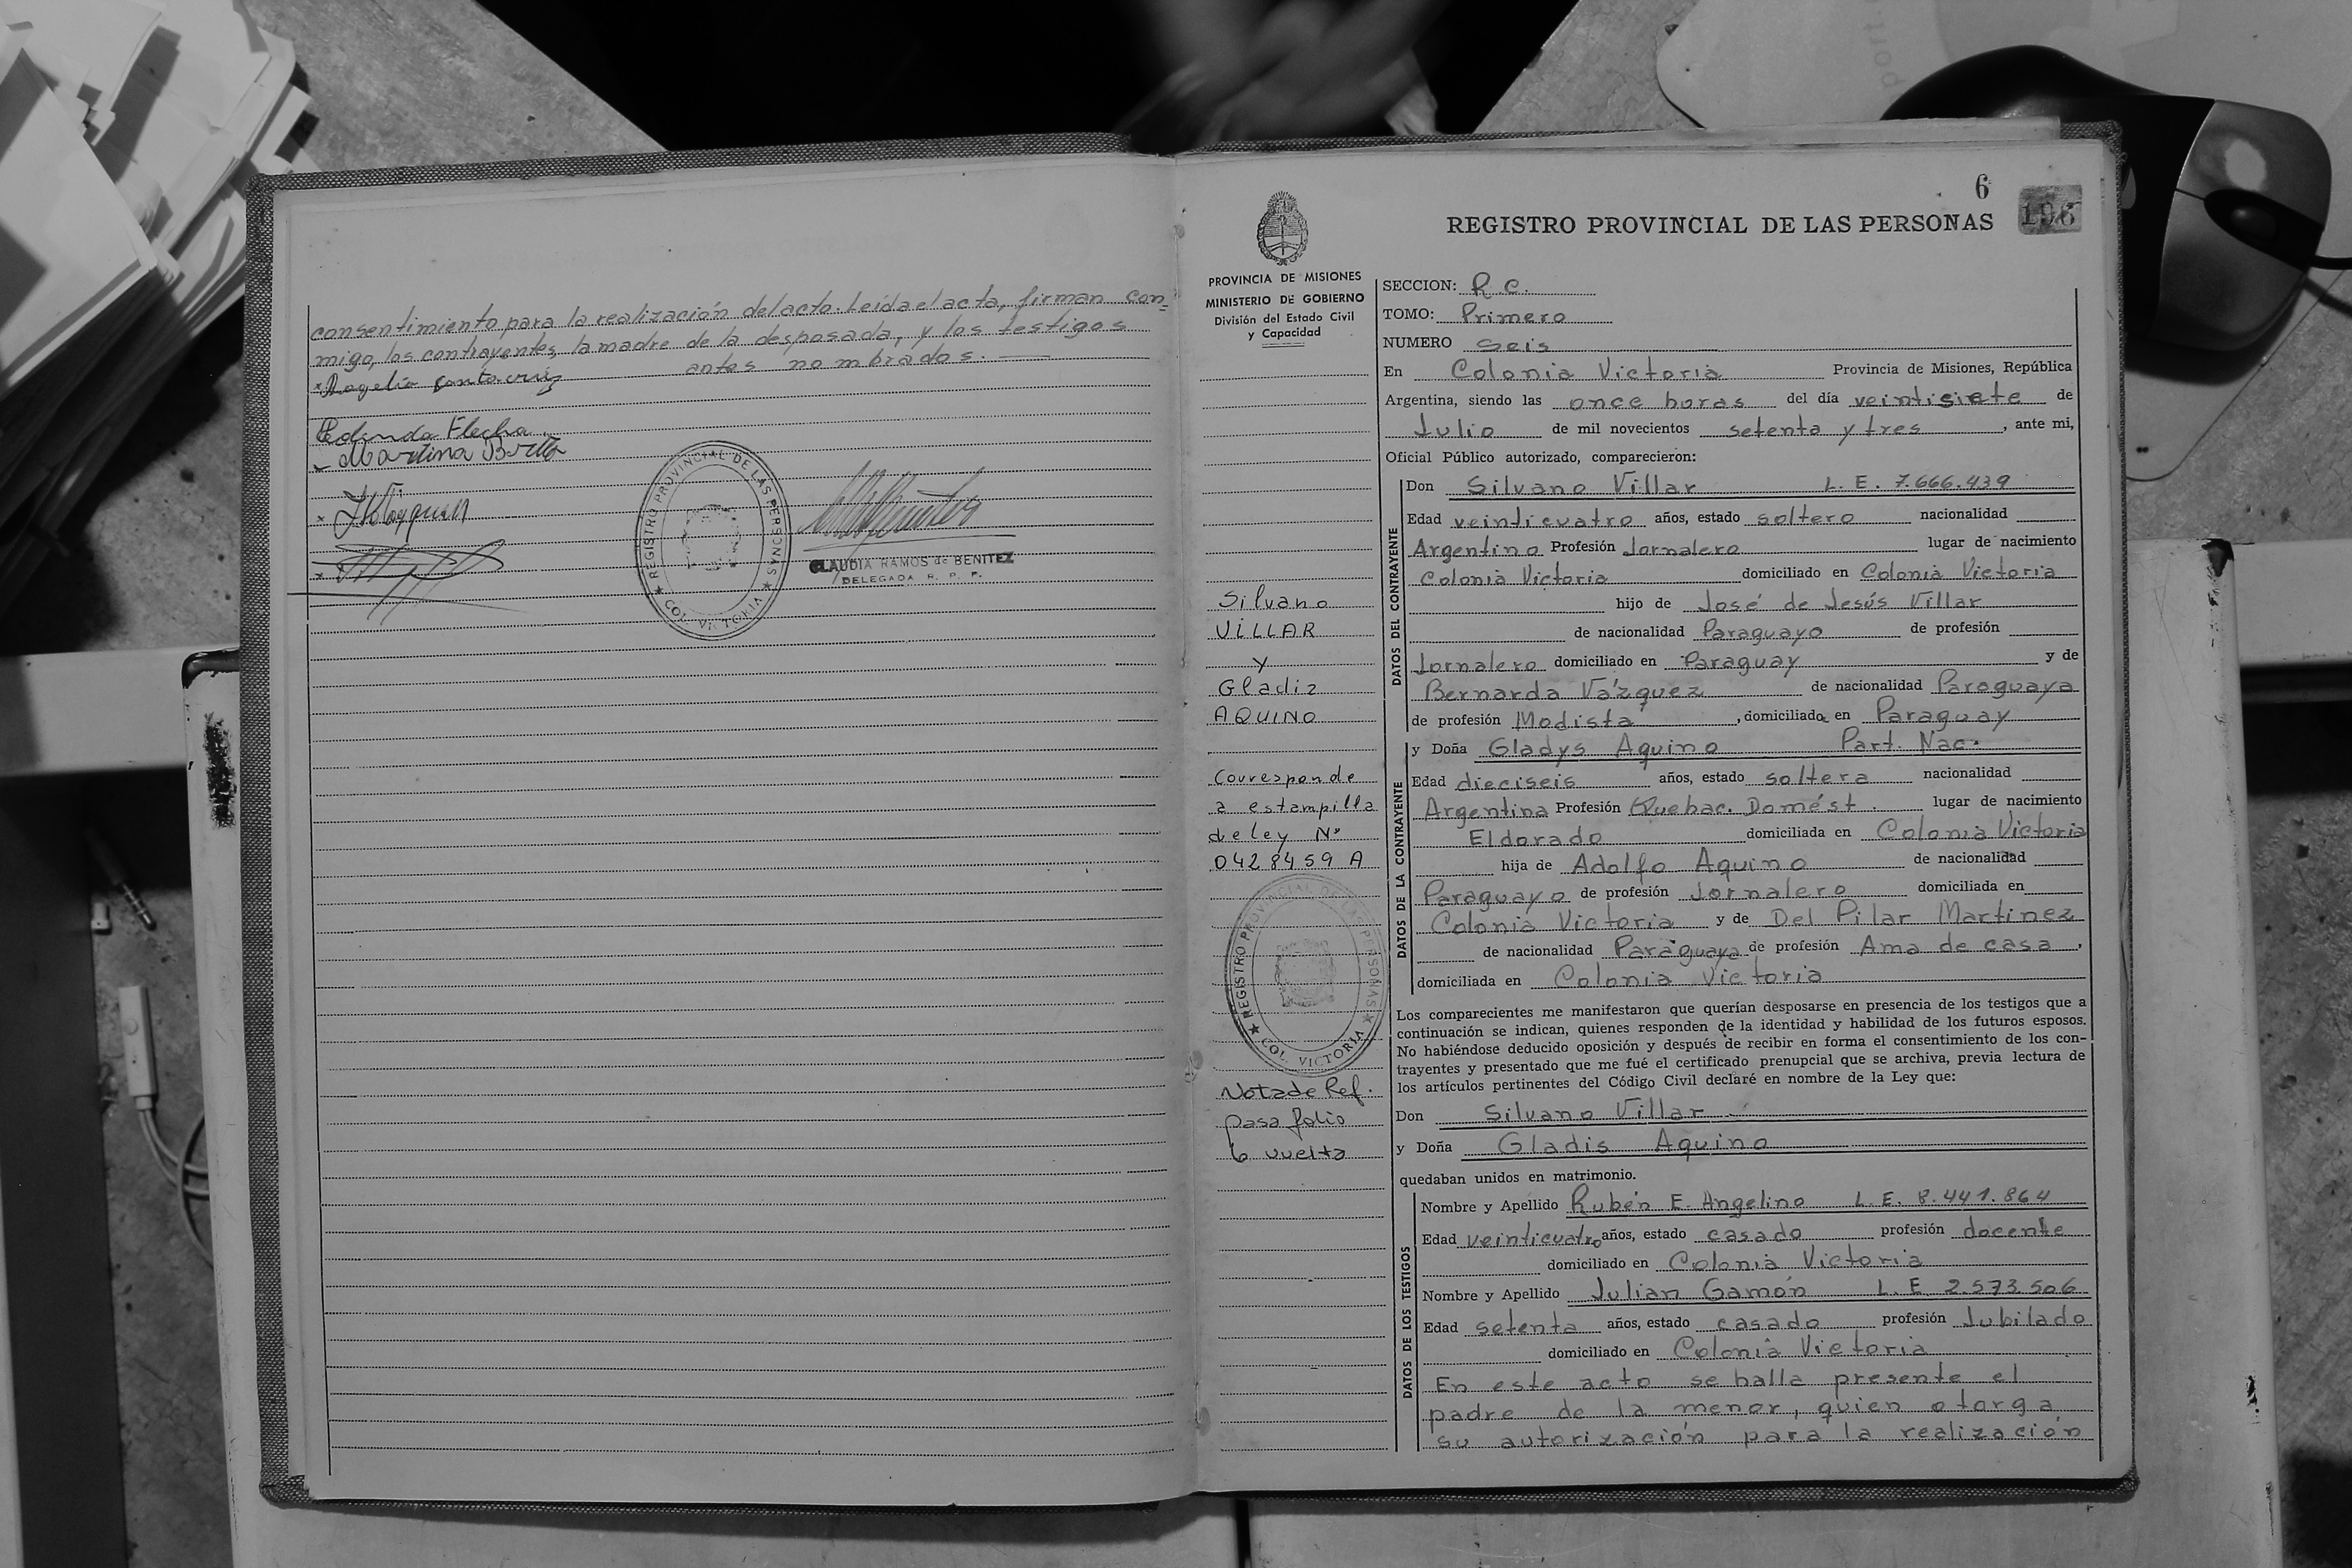 consentimiento para la realización del acto. Leída el acta, firman con-
migo, los contrayentes, la madre de la desposada, y los testigos
antes nombrados.
Rogelio Santa cruz
Flecha
Martina Britto
REGISTRO PROVINCIAL DE LAS PERSONAS
COL. VICTORIA
CLAUDIA RAMOS de BENITEZ
DELEGADA R. P. P.
6
196
REGISTRO PROVINCIAL DE LAS PERSONAS
PROVINCIA DE MISIONES
MINISTERIO DE GOBIERNO
División del Estado Civil
y Capacidad
Silvano
VILLAR
y
Gladiz
AQUINO
Corresponde
a estampilla
de ley Nº
0428459 A
REGISTRO PROVINCIAL DE LAS PERSONAS
COL. VICTORIA
Nota de Ref.
Pasa folio
6 vuelta
SECCION: R.C.
TOMO: Primero
NUMERO Seis
En Colonia Victoria Provincia de Misiones, República
Argentina, siendo las once horas del día veintisiete de
Julio de mil novecientos setenta y tres, ante mi,
Oficial Público autorizado, comparecieron:
DATOS DEL CONTRAYENTE
Don Silvano Villar L. E. 7.666.439
Edad veinticuatro años, estado soltero nacionalidad
Argentino Profesión Jornalero lugar de nacimiento
Colonia Victoria domiciliado en Colonia Victoria
hijo de José de Jesús Villar
de nacionalidad Paraguayo de profesión
Jornalero domiciliado en Paraguay y de
Bernarda Vázquez de nacionalidad Paraguaya
de profesión Modista, domiciliada en Paraguay
DATOS DE LA CONTRAYENTE
y Doña Gladys Aquino Part. Nac.
Edad dieciseis años, estado soltera nacionalidad
Argentina Profesión Quehac. Domést. lugar de nacimiento
Eldorado domiciliada en Colonia Victoria
hija de Adolfo Aquino de nacionalidad
Paraguayo de profesión Jornalero domiciliada en
Colonia Victoria y de Del Pilar Martinez
de nacionalidad Paraguaya de profesión Ama de casa,
domiciliada en Colonia Victoria
Los comparecientes me manifestaron que querían desposarse en presencia de los testigos que a
continuación se indican, quienes responden de la identidad y habilidad de los futuros esposos.
No habiéndose deducido oposición y después de recibir en forma el consentimiento de los con-
trayentes y presentado que me fué el certificado prenupcial que se archiva, previa lectura de
los artículos pertinentes del Código Civil declaré en nombre de la Ley que:
Don Silvano Villar
y Doña Gladis Aquino
quedaban unidos en matrimonio.
DATOS DE LOS TESTIGOS
Nombre y Apellido Rubén E. Angelino L. E. 8.441.864
Edad veinticuatro años, estado casado profesión docente
domiciliado en Colonia Victoria
Nombre y Apellido Julian Gamón L. E 2.573.506
Edad setenta años, estado casado profesión Jubilado
domiciliado en Colonia Victoria
En este acto se halla presente el
padre de la menor, quien otorga
su autorización para la realización